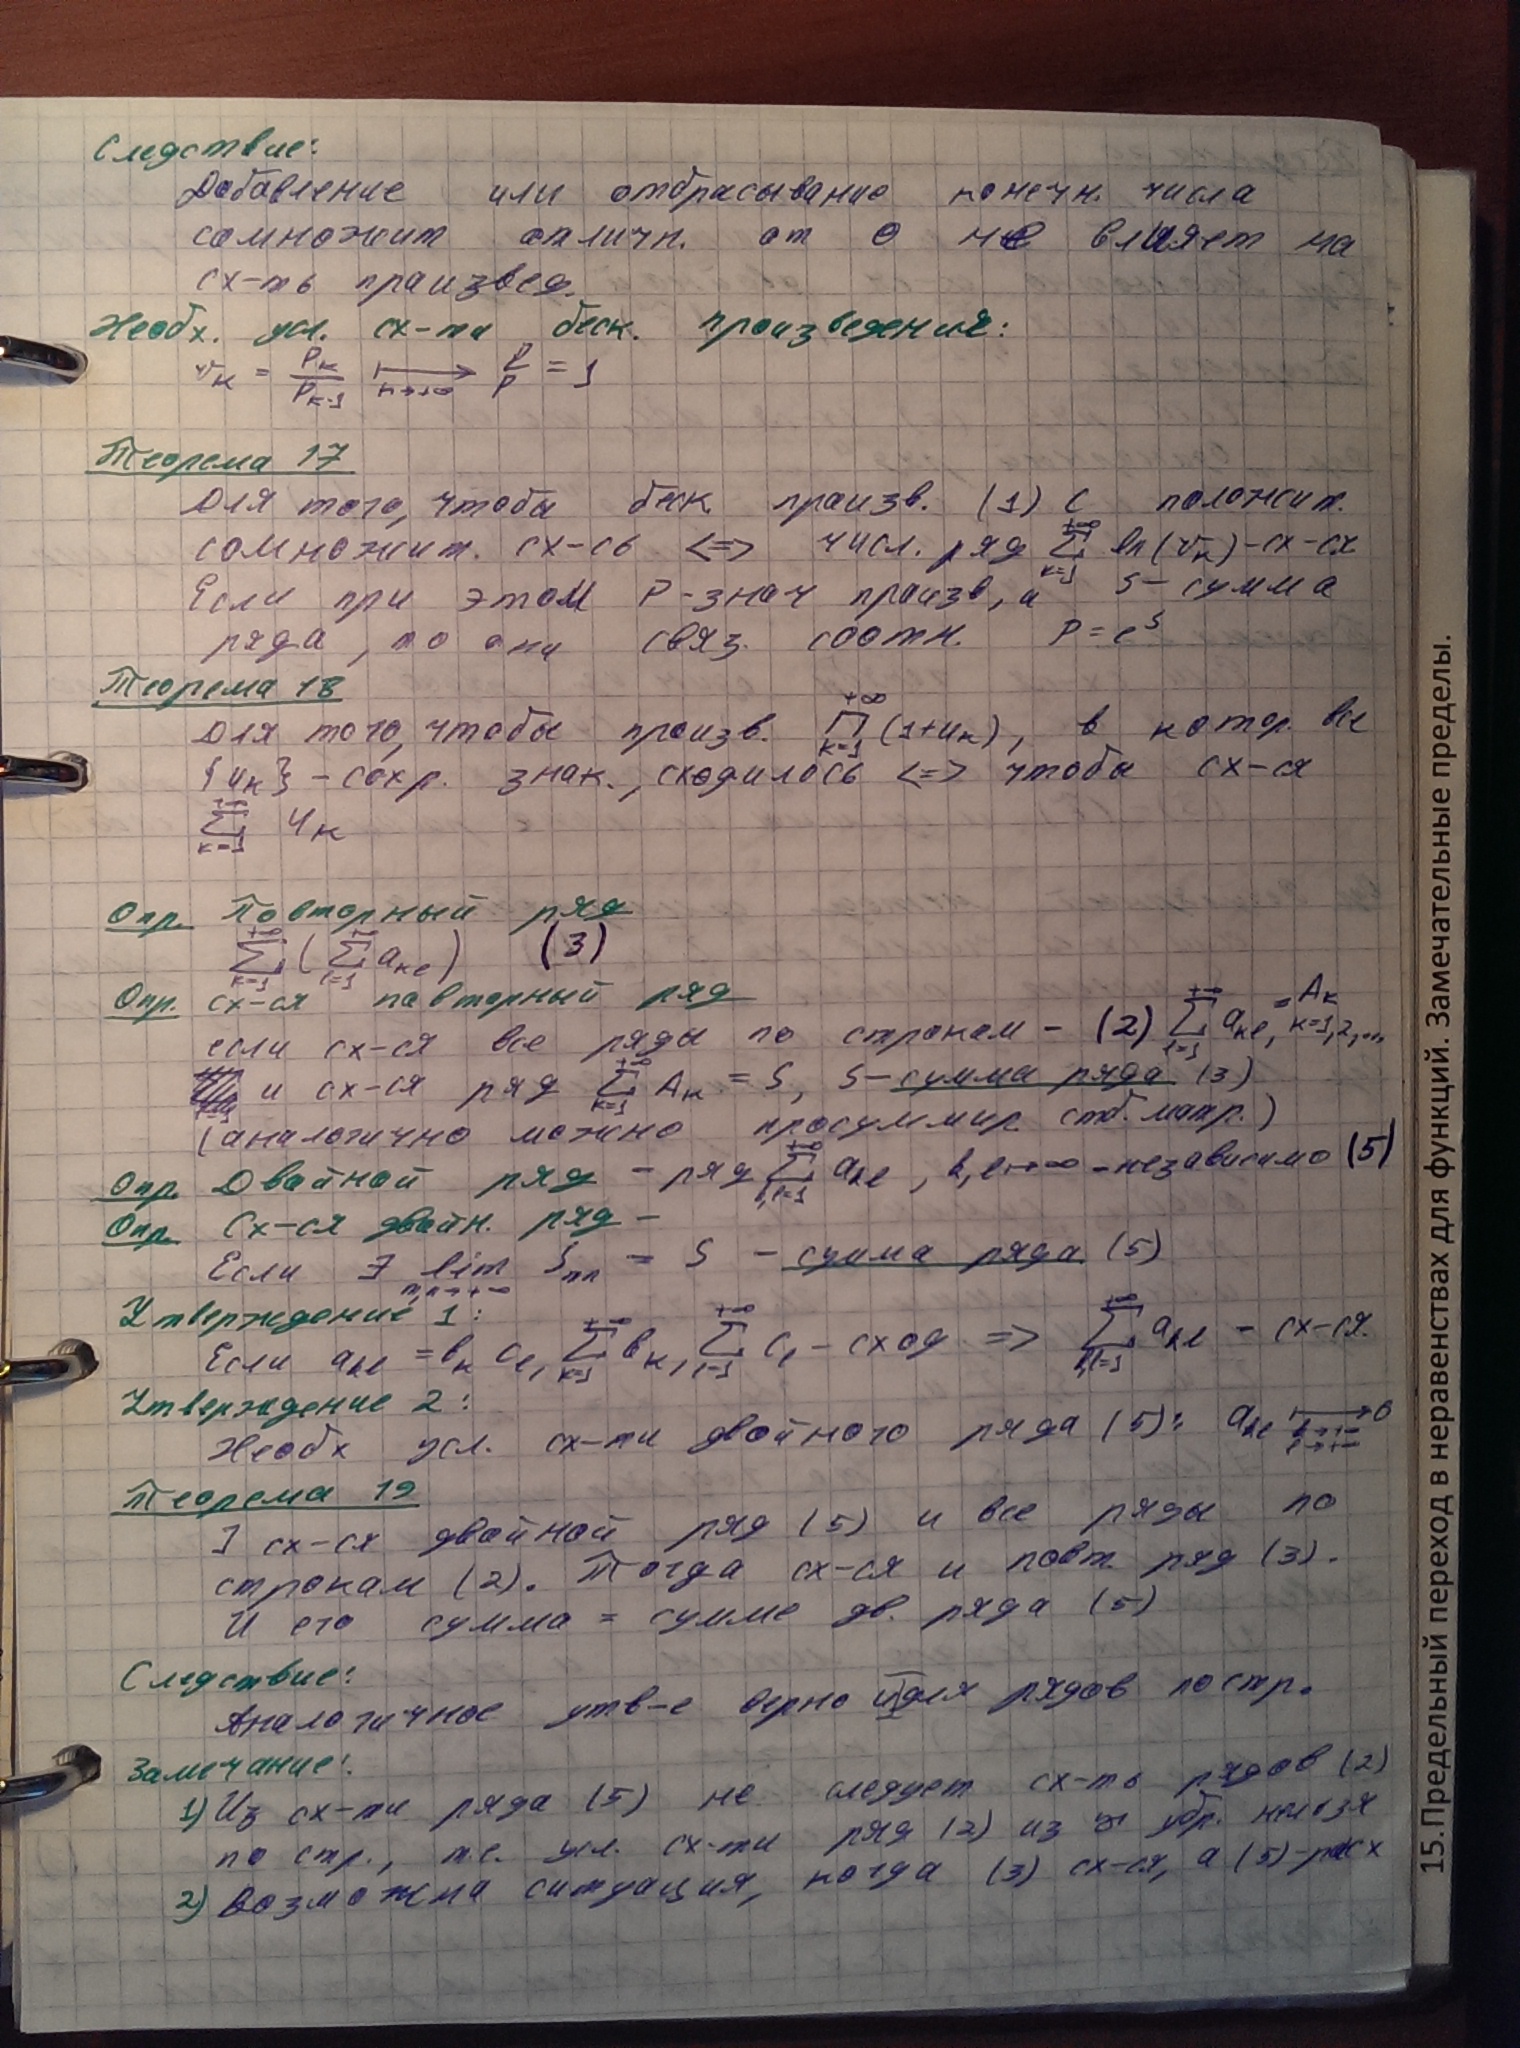 Следствие:
Добавление или отбрасывание конечн. числа
сомножит отличн. от 0 не влияет на
сх-ть произвед.
Необх. усл. сх-ти беск. произведения:
v_k = P_k / P_{k-1} ⟼ (n→+∞) P/P = 1
Теорема 17
Для того, чтобы беск. произв. (1) с положит.
сомножит. сх-сь <=> числ. ряд Σ_{k=1}^{+∞} ln(v_k) - сх-ся
Если при этом P - знач произв, а S - сумма
ряда, то они связ. соотн. P = e^S
Теорема 18
Для того, чтобы произв. Π_{k=1}^{+∞} (1+u_k), в котор. все
{u_k} - сохр. знак., сходилось <=> чтобы сх-ся
Σ_{k=1}^{+∞} u_k
Опр. Повторный ряд
Σ_{k=1}^{+∞} ( Σ_{l=1}^{+∞} a_{kl} ) (3)
Опр. сх-ся повторный ряд
если сх-ся все ряды по строкам - (2) Σ_{l=1}^{+∞} a_{kl} = A_k, k=1,2,...
и сх-ся ряд Σ_{k=1}^{+∞} A_k = S, S - сумма ряда (3)
(аналогично можно просуммир. стб. матр.)
Опр. Двойной ряд - ряд Σ_{k,l=1}^{+∞} a_{kl}, k,l→∞ - независимо (5)
Опр. Сх-ся двойн. ряд -
Если ∃ lim_{m,n→+∞} S_{mn} = S - сумма ряда (5)
Утверждение 1:
Если a_{kl} = b_k c_l, Σ_{k=1}^{+∞} b_k, Σ_{l=1}^{+∞} c_l - сход => Σ_{k,l=1}^{+∞} a_{kl} - сх-ся.
Утверждение 2:
Необх усл. сх-ти двойного ряда (5): a_{kl} ⟼ (k→+∞ l→+∞) 0
Теорема 19
] сх-ся двойной ряд (5) и все ряды по
строкам (2). Тогда сх-ся и повт. ряд (3).
И его сумма = сумме дв. ряда (5)
Следствие:
Аналогичное утв-е верно и для рядов по стр.
Замечание:
1) Из сх-ти ряда (5) не следует сх-ть рядов (2)
по стр., т.е. усл. сх-ти ряд (2) из убр. нельзя
2) Возможна ситуация, когда (3) сх-ся, а (5) - расх
15.Предельный переход в неравенствах для функций. Замечательные пределы.